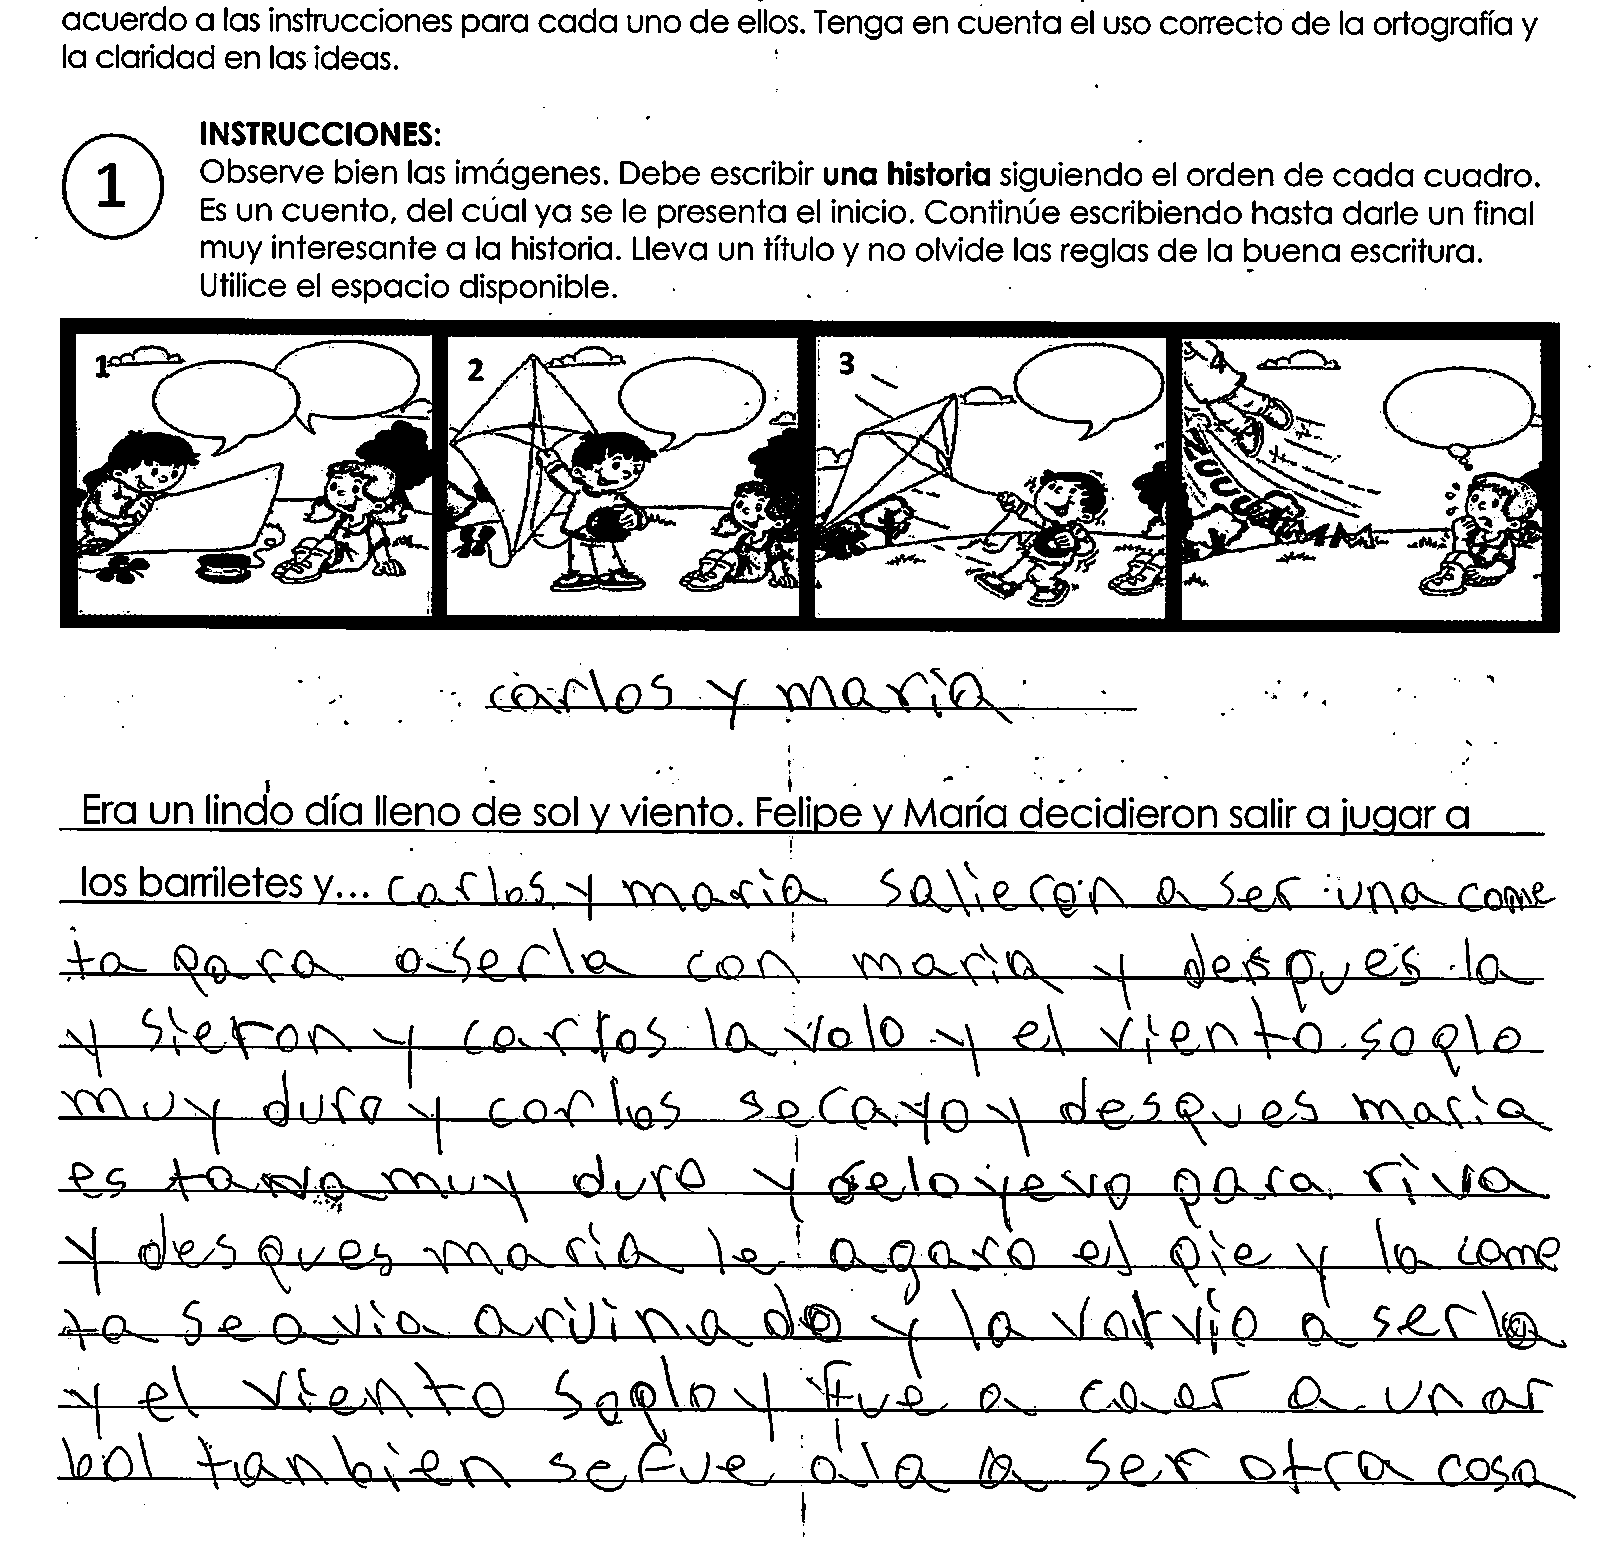 acuerdo a las instrucciones para cada uno de ellos. Tenga en cuenta el uso correcto de la ortografía y
la claridad en las ideas.
1
INSTRUCCIONES:
Observe bien las imágenes. Debe escribir una historia siguiendo el orden de cada cuadro.
Es un cuento, del cúal ya se le presenta el inicio. Continúe escribiendo hasta darle un final
muy interesante a la historia. Lleva un título y no olvide las reglas de la buena escritura.
Utilice el espacio disponible.
1 2 3 4
carlos y maria
Era un lindo día lleno de sol y viento. Felipe y María decidieron salir a jugar a
los barriletes y... carlos y maria salieron a ser una come
ta para aserla con maria y despues la
y sieron y carlos la volo y el viento soplo
muy duro y carlos se cayo y despues maria
es tava muy duro y selo yevo para riva
y despues maria le agaro el pie y la come
ta se avia aruinado y la volvio a serla
y el viento soplo y fue a caer a un ar
bol tanbien se fue ala a ser otra cosa